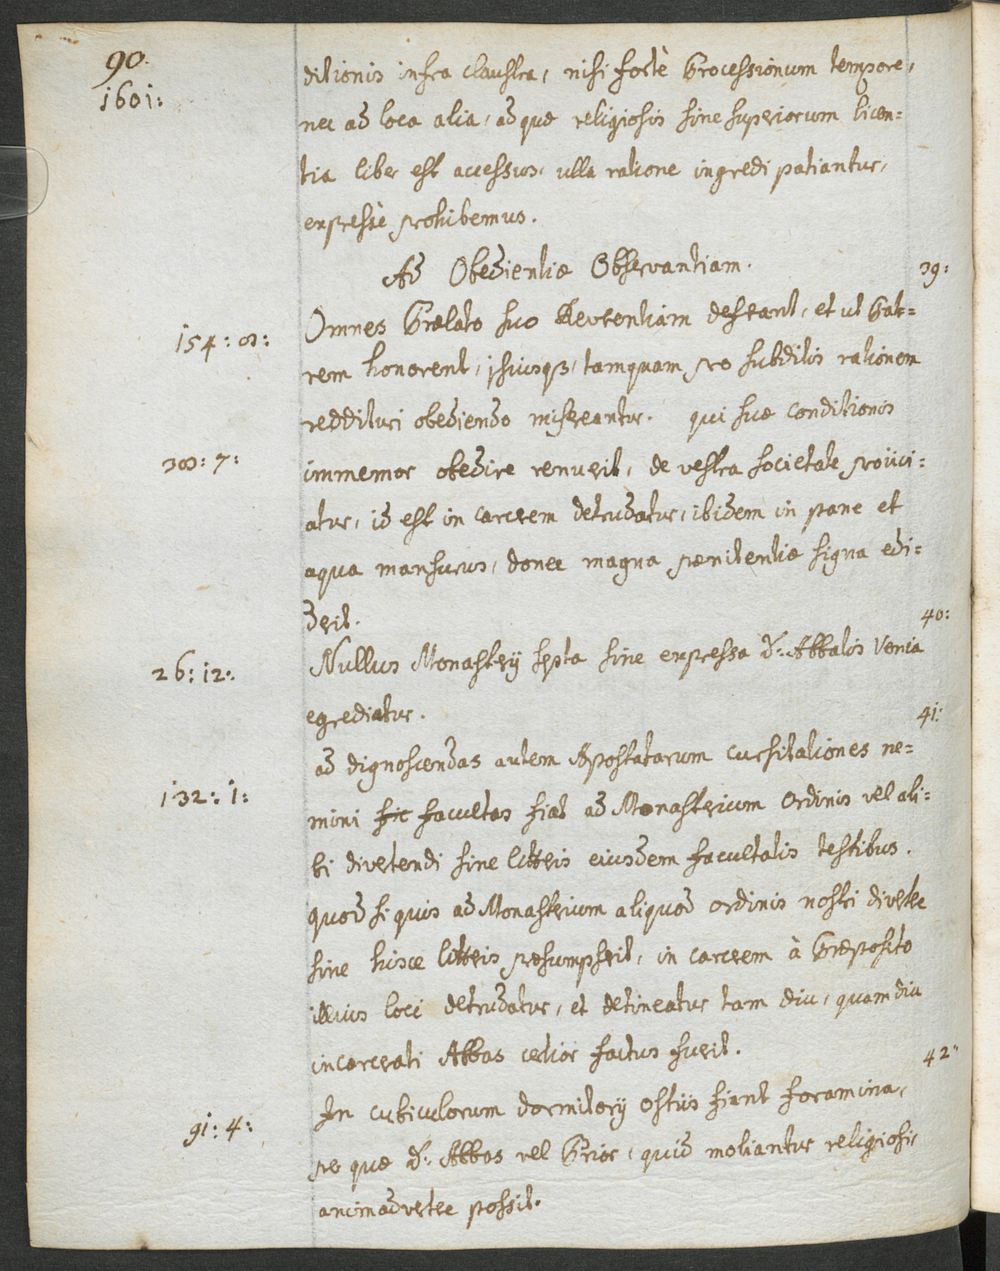 90.
1601:
ditionis infra claustra, nisi fortè Processionum tempore,
nec ad loca alia, ad quæ religiosis sine superiorum licen=
tia liber est accessus, ulla ratione ingredi patiantur,
expressè prohibemus.
Ad Obedientiæ Observantiam. 39:
154: 8: Omnes Prælato suo Reverentiam deferant, et ut Pat=
rem honorent, ipsiusq3, tamquam pro subditis rationem
reddituri obediendo misereantur. qui suæ conditionis
308: 7: immemor obedire renuerit, de vestra societate proiici=
atur, id est in carcerem detrudatur, ibidem in pane et
aqua mansurus, donec magna pænitentiæ signa edi=
derit. 40:
26: 12: Nullus Monasterij septa sine expressa d: Abbatis venia
egrediatur. 41:
ad dignoscendas autem Apostatarum cursitationes ne=
132: 1: mini fit facultas fiat ad Monasterium ordinis vel ali=
bi divertendi sine litteris eiusdem facultatis testibus.
quod si quis ad Monasterium aliquod ordinis nostri divertere
sine hisce litteris præsumpserit, in carcerem à Præposito
illius loci detrudatur, et detineatur tam diu, quam diu
incarcerati Abbas certior factus fuerit. 42"
91: 4: In cubiculorum dormitorij ostiis fiant foramina,
per quæ d: Abbas vel Prior, quid moliantur religiosi
animadvertere possit.